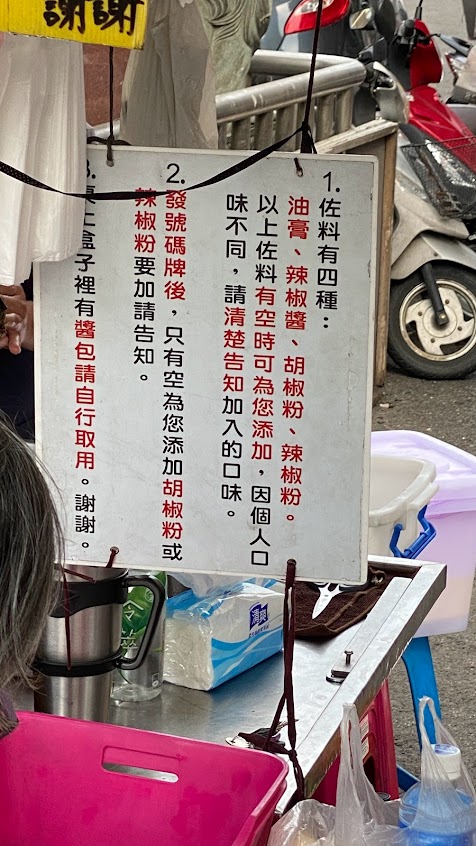 謝謝
1. 佐料有四種：
油膏、辣椒醬、胡椒粉、辣椒粉。
以上佐料有空時可為您添加，因個人口
味不同，請清楚告知加入的口味。
2. 發號碼牌後，只有空為您添加胡椒粉或
辣椒粉要加請告知。
3. 桌上盒子裡有醬包請自行取用。謝謝。
清爽